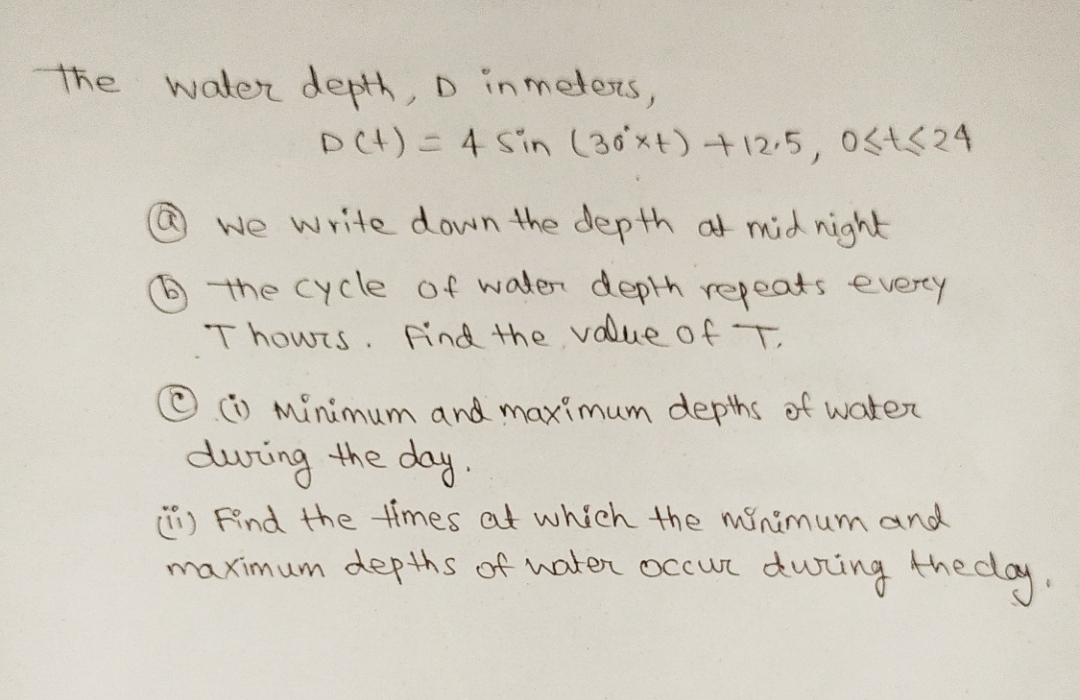 The water depth, D in meters,
D(t) = 4 Sin (30° × t) + 12.5, 0 ≤ t ≤ 24
ⓐ we write down the depth at mid night
ⓑ the cycle of water depth repeats every
T hours. Find the value of T.
ⓒ (i) Minimum and maximum depths of water
during the day.
(ii) Find the times at which the minimum and
maximum depths of water occur during the day.